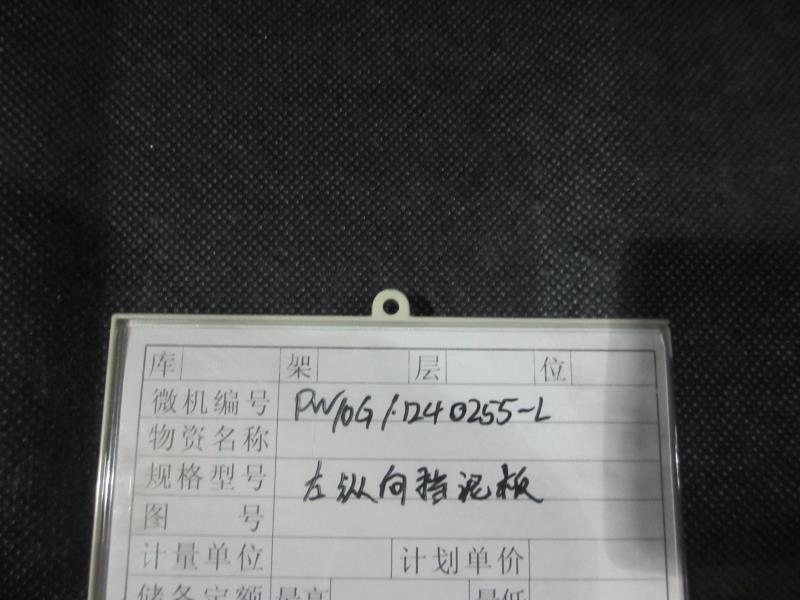 库 架 层 位
微机编号 PW10G1.1240255-L
物资名称
规格型号 左纵向挡泥板
图 号
计量单位 计划单价
储备定额 最高 最低